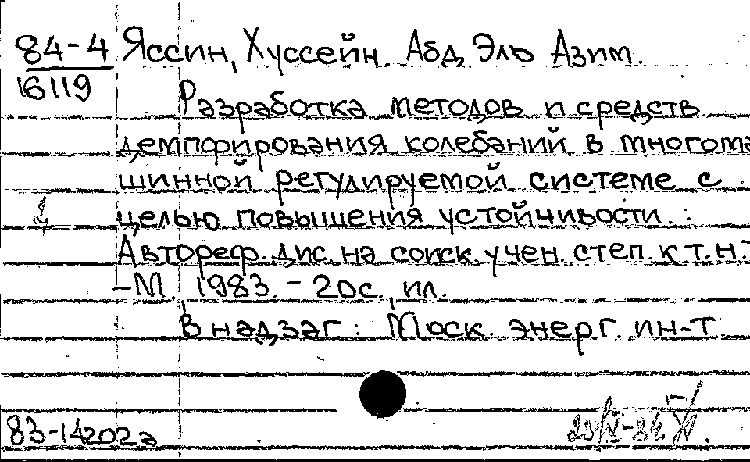 84-4 Яссин, Хуссейн Абд Эль Азим
16119
Разработка методов и средств
демпфирования колебаний в многома
шинной регулируемой системе с
целью повышения устойчивости :
Автореф. дис. на соиск. учен. степ. к.т.н.:
-М., 1983. - 20с., ил.
В надзаг: Моск. энерг. ин-т
83-14202а